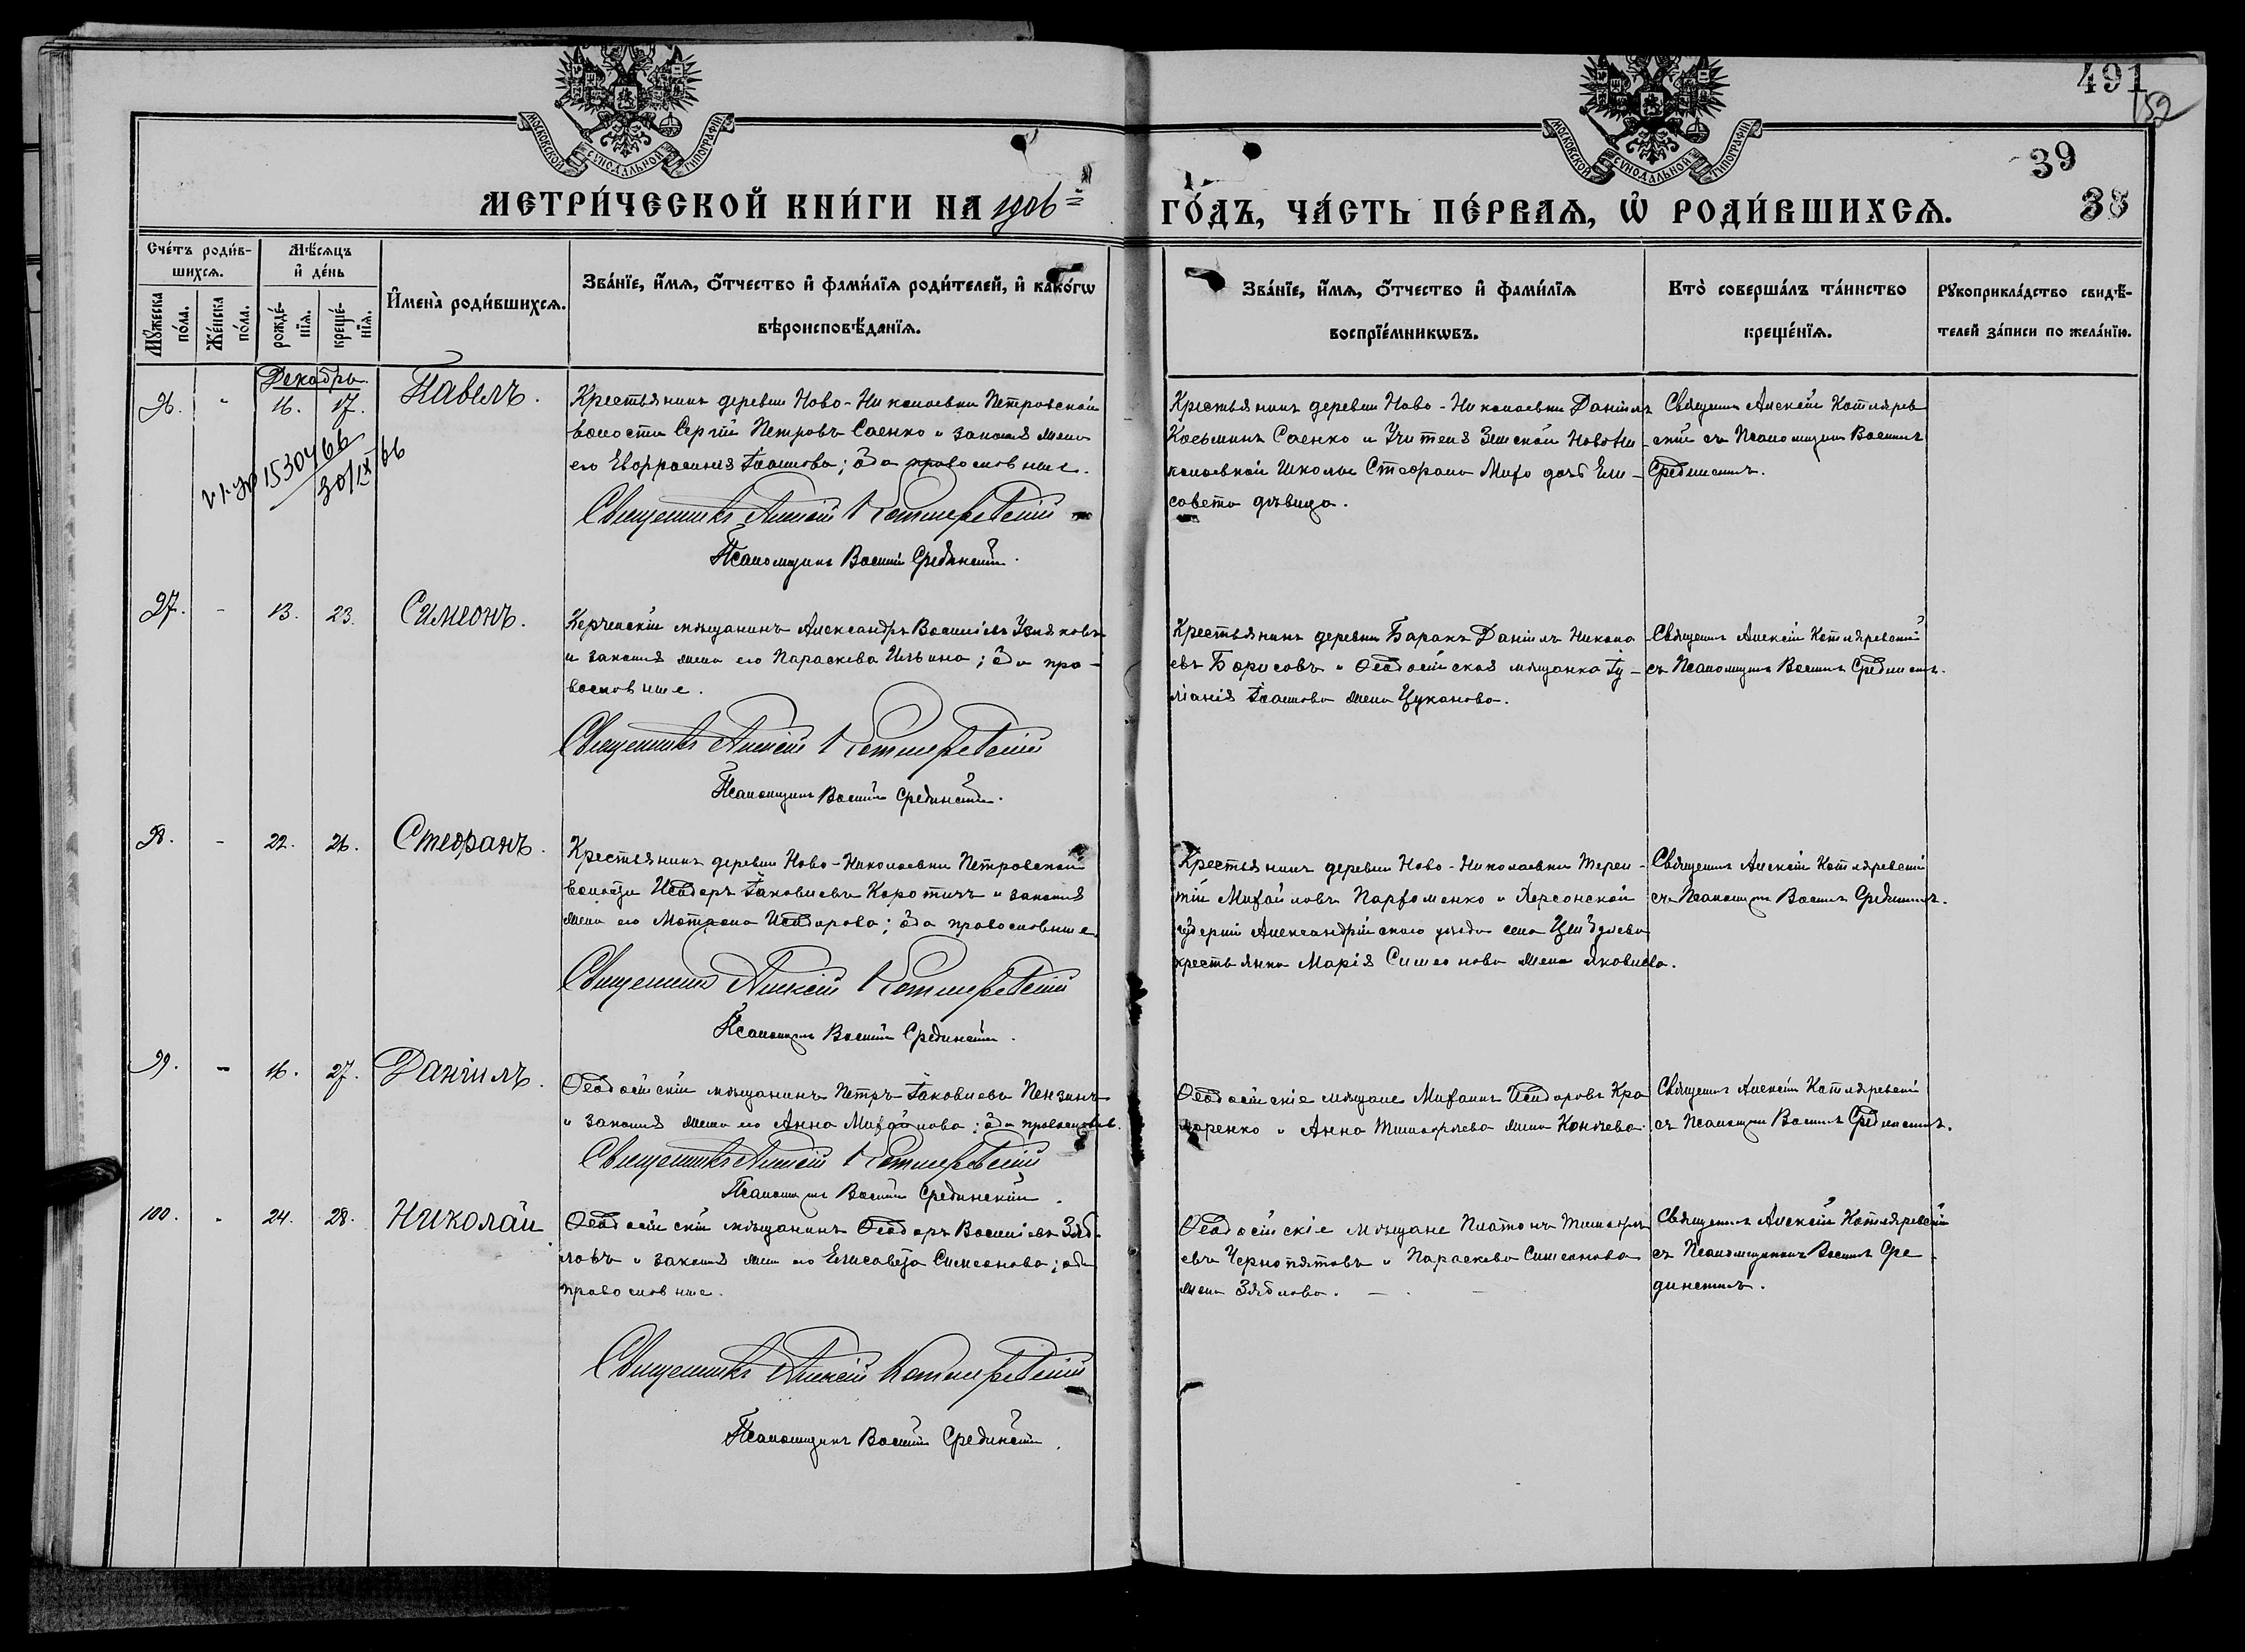 491
152
39
38
МОСКОВСКОЙ СѴНОДАЛЬНОЙ ТИПОГРАФІИ
МОСКОВСКОЙ СѴНОДАЛЬНОЙ ТИПОГРАФІИ
МЕТРИ́ЧЕСКОЙ КНИ́ГИ НА 1906й
ГО́ДЪ, ЧА́СТЬ ПЕ́РВАѦ, Ѡ҆ РОДИ́ВШИХСѦ.
Сче́тъ роди́в-
шихсѧ.
Мꙋ́жеска по́ла.
Же́нска по́ла.
Мѣ́сѧцъ
и҆ де́нь
рожде́-
нїѧ.
креще́-
нїѧ.
И҆мена̀ роди́вшихсѧ.
Зва́нїе, и҆́мѧ, ѻ҆́тчество и҆ фами́лїѧ роди́телей, и҆ како́гѡ
вѣроисповѣ́данїѧ.
Зва́нїе, и҆́мѧ, ѻ҆́тчество и҆ фами́лїѧ
воспрїе́мникѡвъ.
Кто̀ соверша́лъ та́инство
креще́нїѧ.
Рꙋкоприкла́дство свидѣ́-
телей за́писи по жела́нїю.
Декабрь
96. - 16. 17. Павелъ.
Крестьянинъ деревни Ново-Николаевки Петровской
волости Сергій Петровъ Саенко и законная жена
его Евфросинія Іоаннова; оба православные.
Священникъ Алексій Котляревскій
Псаломщикъ Василій Срединскій.
Крестьянинъ деревни Ново-Николаевки Даніилъ
Косьминъ Саенко и Учителя Земской Ново Ни-
колаевкой Школы Стефана дочь Ели-
савета дѣвица.
Священникъ Алексій Котлярев-
скій съ Псаломщикомъ Василіемъ
Срединскимъ.
1530466
30/IX 66
97. - 13. 23. Симеонъ.
Керченскій мѣщанинъ Александръ Василіевъ Узняковъ
и законная жена его Параскева Ильина; оба пра-
вославные.
Священникъ Алексій Котляревскій
Псаломщикъ Василій Срединскій.
Крестьянинъ деревни Баракъ Даніилъ Никола-
евъ Борисовъ и Ѳеодосійская мѣщанка Іу-
ліанія Іоаннова жена Цуканова.
Священникъ Алексій Котляревскій
съ Псаломщикомъ Василіемъ Срединскимъ.
98. - 22. 26. Стефанъ.
Крестьянинъ деревни Ново-Николаевки Петровской
волости Исидоръ Іаковлевъ Коротичъ и законная
жена его Матрона Исидорова; оба православные.
Священникъ Алексій Котляревскій
Псаломщикъ Василій Срединскій.
Крестьянинъ деревни Ново-Николаевки Терен-
тій Михайловъ Пархоменко и Херсонской
губерніи Александрійскаго уѣзда села Цибулева
крестьянка Марія Симеонова жена Яковлева.
Священникъ Алексій Котляревскій
съ Псаломщикомъ Василіемъ Срединскимъ.
99. - 16. 27. Даніилъ.
Ѳеодосійскій мѣщанинъ Петръ Іаковлевъ Пензинъ
и законная жена его Анна Михайлова; оба православ.
Священникъ Алексій Котляревскій
Псаломщикъ Василій Срединскій.
Ѳеодосійскіе мѣщане Михаилъ Исидоровъ Кра-
маренко и Анна Тимофѣева жена Кончева.
Священникъ Алексій Котляревскій
съ Псаломщикомъ Василіемъ Срединскимъ.
100. - 24. 28. Николай
Ѳеодосійскій мѣщанинъ Ѳеодоръ Василіевъ Зяб-
ловъ и законная жена его Елисавета Симеонова; оба
православные.
Священникъ Алексій Котляревскій
Псаломщикъ Василій Срединскій.
Ѳеодосійскіе мѣщане Платонъ Тимофѣ-
евъ Чернопятовъ и Параскева Симеонова
жена Зяблова.
Священникъ Алексій Котляревскій
съ Псаломщикомъ Василіемъ Сре-
динскимъ.